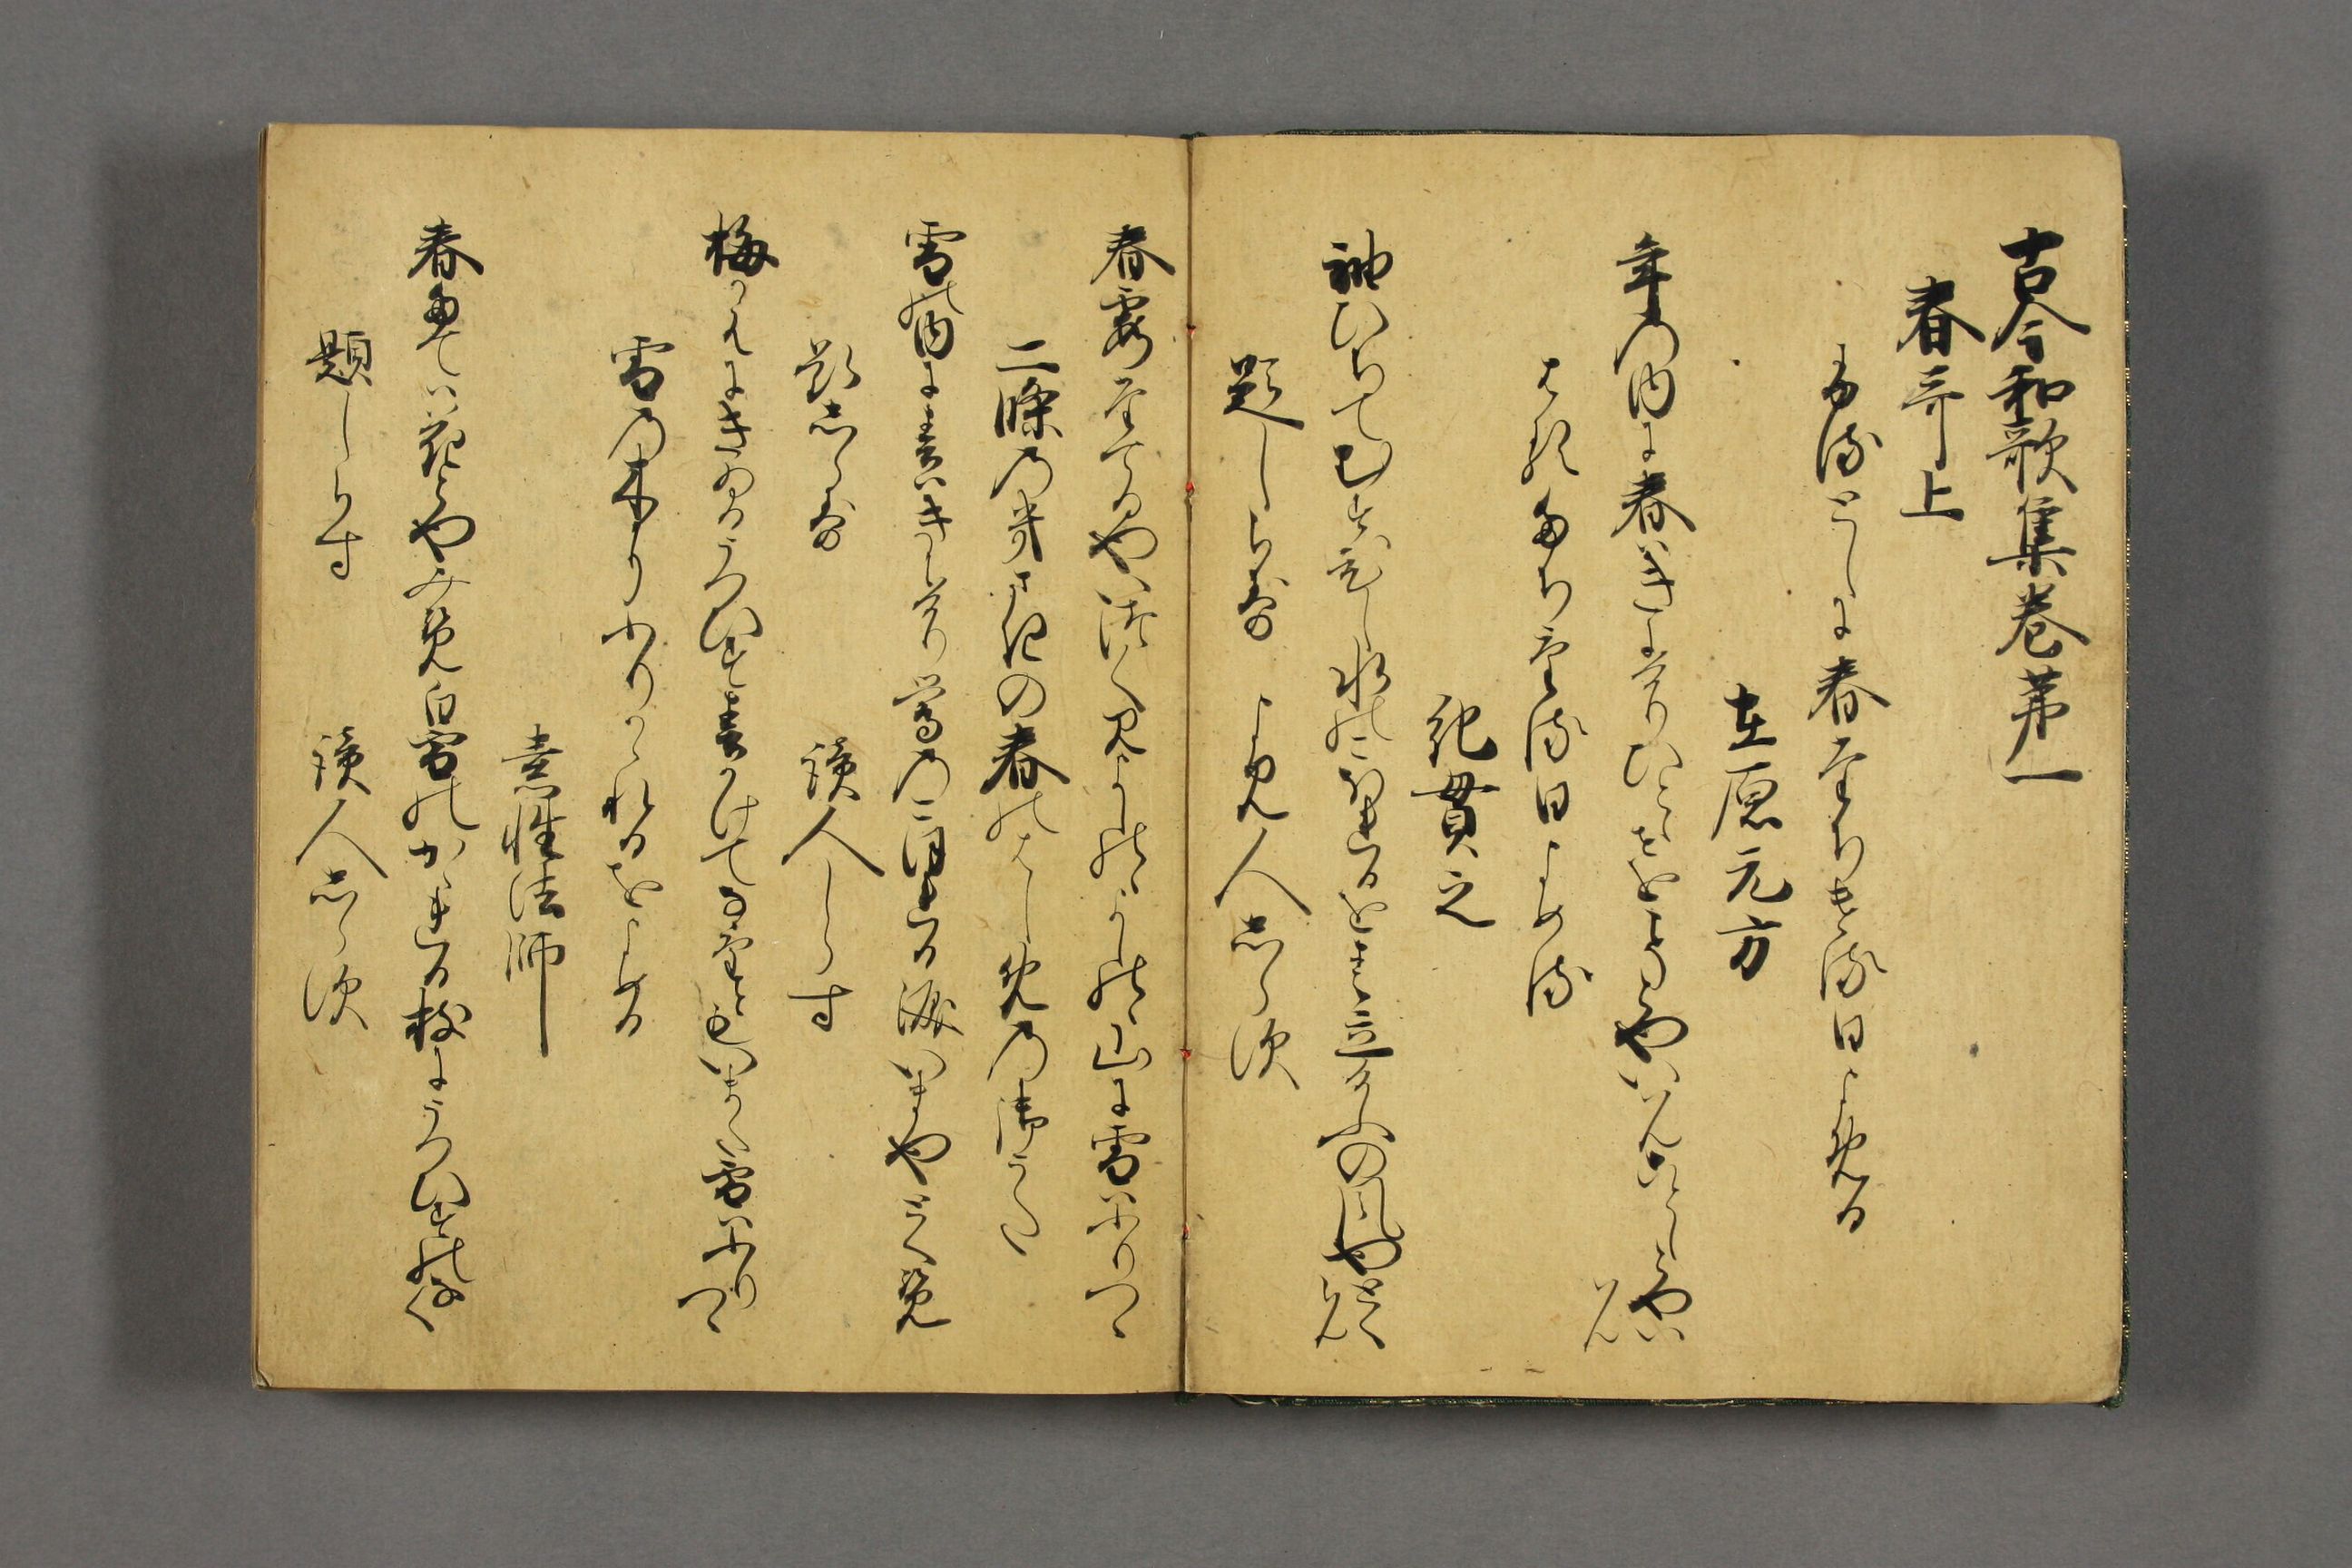 古今和歌集巻第一
春哥上
ふるとしに春たちける日よめる
在原元方
年の内に春はきにけりひとゝせをこそとやいはんことしとやいは
はん
はるたちける日よめる
紀貫之
袖ひちてむすひし水のこほれるを春立けふの風やとくらん
題しらす　よみ人しらす
春霞たてるやいつくみよしのゝよしのゝ山に雪はふりつゝ
二條の后きさきの春のはしめの御うた
雪の内に春はきにけり鶯のこほれる涙いまやとくらむ
題しらす　讀人しらす
梅かえにきゐるうくひす春かけてなけともいまた雪はふりつゝ
雪の木にふりかゝれるをよめる
素性法師
春たては花とやみらむ白雪のかゝれる枝にうくひすのなく
題しらす　讀人しらす